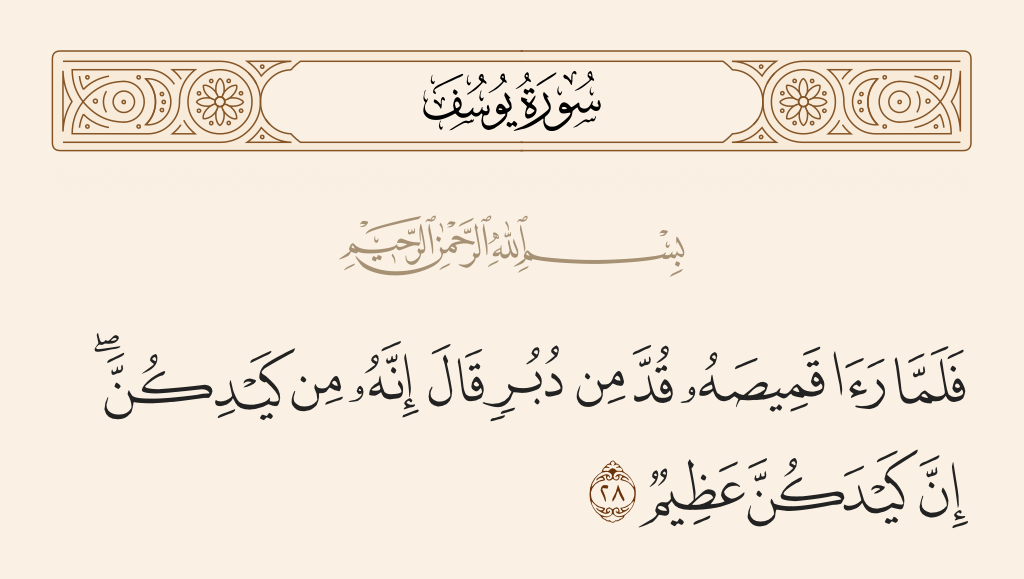 سُورَةُ يُوسُفَ
بِسْمِ ٱللَّهِ ٱلرَّحْمَٰنِ ٱلرَّحِيمِ
فَلَمَّا رَءَا قَمِيصَهُۥ قُدَّ مِن دُبُرٍ قَالَ إِنَّهُۥ مِن كَيْدِكُنَّ ۖ
إِنَّ كَيْدَكُنَّ عَظِيمٌ ٢٨